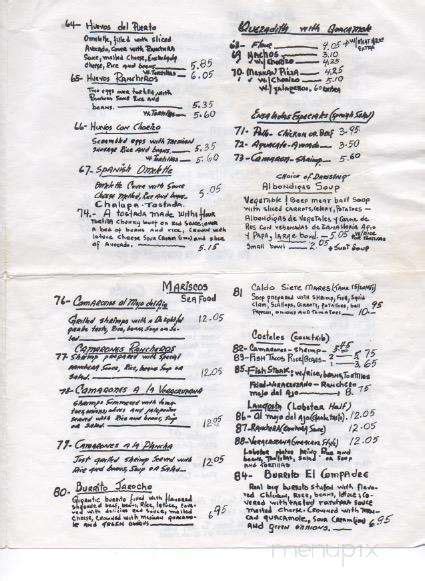 64- Huevos del Puerto
Omelette, filled with sliced
Avocado, cover with Ranchera
Sauce, melted cheese,
cheese, Rice and beans. 5.85
W. Tortillas 6.05
65- Huevos Rancheros
Two eggs over tortilla, with
Ranchera Sauce Rice and
beans. 5.35
W. Tortillas 5.60
66- Huevos con Chorizo
Scrambled eggs with Mexican
sausage Rice and beans. 5.35
W. Tortillas 5.60
67- Spanish Omelette
Omelette Cover with Sauce
Cheese melted, Rice and beans. 5.05
Chalapa-Tostada.
74- A tostada made with flour
tortilla
a bed of beans and rice, crowned with
lettuce cheese Sour Cream and slice
of Avocado. 5.15
Quezadilla with Guacamole
68- Flour 4.05
69 Nachos 3.10
w/chorizo 4.25
70- Mexican Pizza 4.25
w/chorizo 5.10
w/jalapeños
Ensaladas Especiales
71- Pollo-Chicken or Beef 3.95
72- Aguacate-Avocado 3.50
73- Camaron-Shrimp 5.60
Choice of Dressing
Albondigas Soup
Vegetable & Beef meat ball Soup
with sliced carrots, celery, Potatoes-
Albondigas de Vegetales y Carne de
Res con verduras de Zanahoria Apio
y Papa, large bowl. 5.05
Small bowl 2.05
Mariscos
Sea Food
76- Camarones al Mojo del Ajo
Grilled shrimps with a Delightful
garlic taste, Rice, beans, Soup or Salad. 12.05
Camarones Rancheros
77- Shrimp prepared with special
ranchera Sauce, Rice, beans Soup or
Salad. 12.05
78- Camarones a la Veracruzana
Shrimps Simmered with tomatoes,
onions, olives and jalapeños
Served with Rice and beans, Soup
or Salad. 12.05
79- Camarones a la Plancha
Just grilled shrimp Served with
Rice and beans, Soup or Salad. 12.05
80- Burrito Jarocho
Gigantic burrito filled with flavored
shredded beef, beans, Rice, lettuce, covered
with Sauce, melted
cheese, crowned with Mexican guacamole
and green onions 6.95
81 Caldo Siete Mares
Soup prepared with shrimp, fish, squid
clam, scallops, carrots, potatoes, bell
Pepper, onions and tomatoes 10.95
Cocteles (Cocktails)
82- Camarones-Shrimp
83- Fish Tacos Rice/beans 2 5.75
3.65
85- Fish Steak w/rice, beans, Tortillas
Fried-Veracruzano-Ranchero-
mojo del Ajo 8.75
Langosta (Lobster Half)
86- Al mojo del Ajo 12.05
87- Ranchera 12.05
88- Veracruzana 12.05
Lobster plates bring Rice and
beans, Tortillas, Salad or Soup
84- Burrito El Compadre
Real big burrito stuffed with flavored
chicken, Rice, beans, lettuce covered
with Ranchera Sauce
melted cheese. Crowned with Mexican
Guacamole, Sour Cream
and green onions. 6.95
menupix